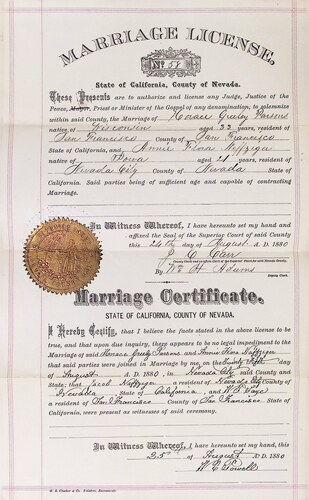 MARRIAGE LICENSE,
No 58
State of California, County of Nevada.
These Presents are to authorize and license any Judge, Justice of the
Peace, Mayor, Priest or Minister of the Gospel of any denomination, to solemnize
within said County, the Marriage of Horace Greely Parsons
native of Wisconsin aged 22 years, resident of
San Francisco County of San Francisco
State of California, and Annie Flora Naffziger
native of Iowa aged 21 years, resident of
Nevada City County of Nevada State of
California. Said parties being of sufficient age and capable of contracting
Marriage.
In Witness Whereof, I have hereunto set my hand and
affixed the Seal of the Superior Court of said County
this 24th day of August A. D. 1880
J. C. Carr
By Wm H. Adams
Deputy Clerk.
Marriage Certificate.
STATE OF CALIFORNIA, COUNTY OF NEVADA.
I Hereby Certify, that I believe the facts stated in the above license to be
true, and that upon due inquiry, there appears to be no legal impediment to the
Marriage of said Horace Greely Parsons and Annie Flora Naffziger
that said parties were joined in Marriage by me, on the Twenty Fifth day
of August A. D. 1880, in Nevada City said County and
State; that Jacob Naffziger a resident of Nevada City County of
Nevada, State of California, and
a resident of San Francisco County of San Francisco, State of
California, were present as witnesses of said ceremony.
In Witness Whereof, I have hereunto set my hand, this
25th day of August A. D. 1880